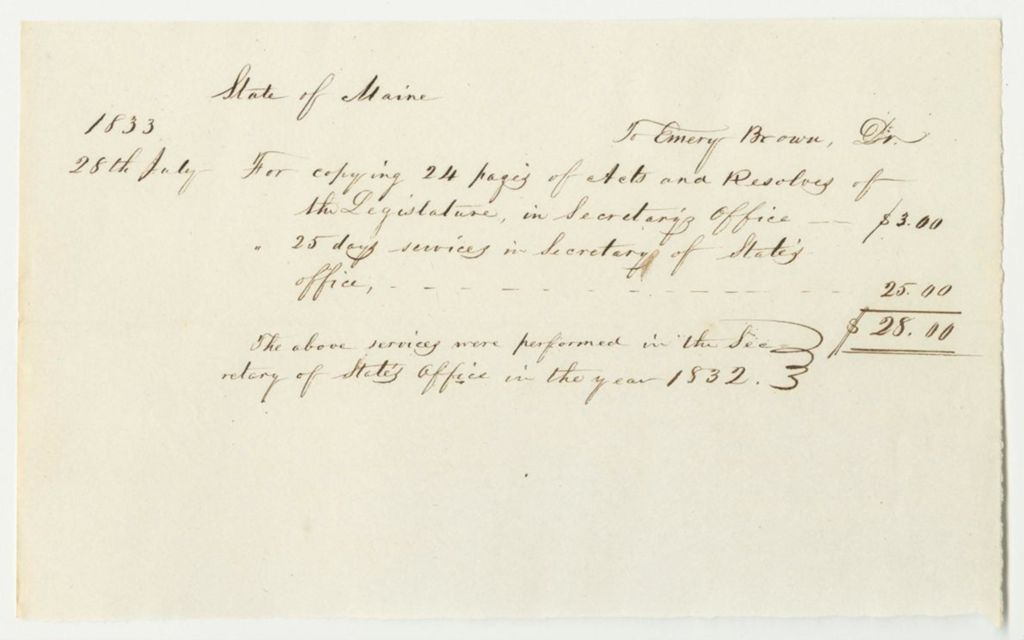 State of Maine
1833 To Emery Brown, Dr.
28th July For copying 24 pages of Acts and Resolves of
the Legislature, in Secretary's Office — — $3.00
" 25 days services in Secretary of State's
office, - - - - - - - - - - 25.00
$ 28.00
The above services were performed in the Sec-
retary of State's Office in the year 1832.